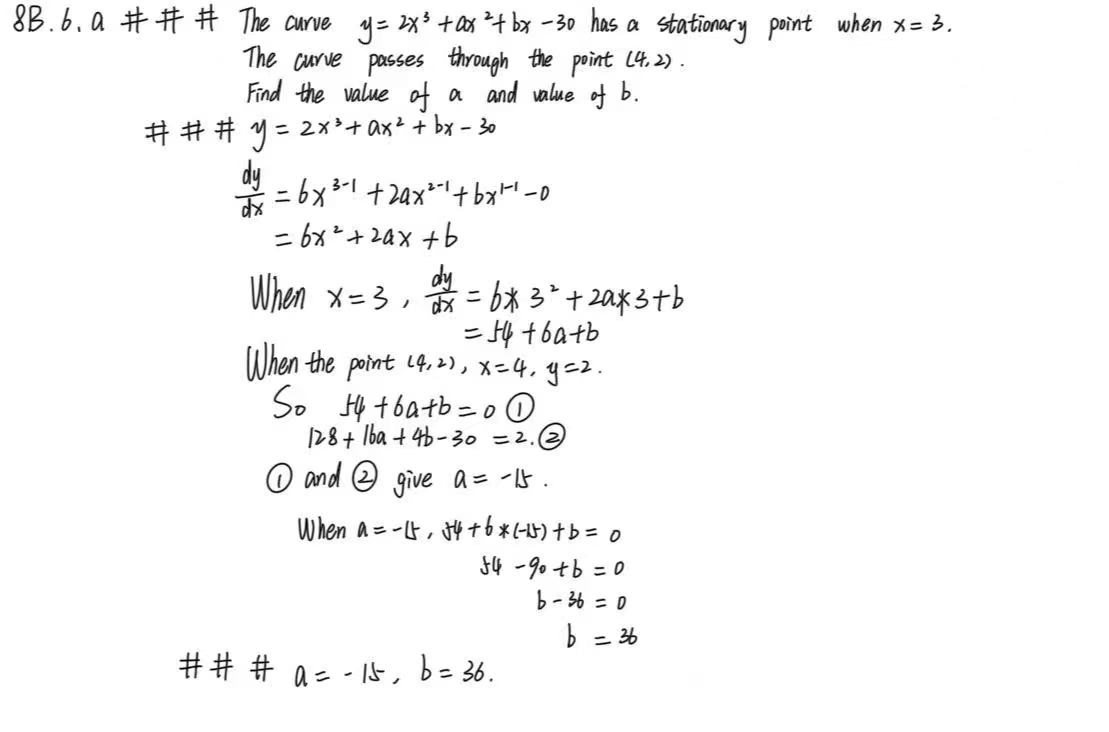 8B.6.a # # # The curve y = 2x³ + ax² + bx - 30 has a stationary point when x = 3.
The curve passes through the point (4,2).
Find the value of a and value of b.
# # # y = 2x³ + ax² + bx - 30
dy/dx = 6x³⁻¹ + 2ax²⁻¹ + bx¹⁻¹ - 0
= 6x² + 2ax + b
When x = 3, dy/dx = 6* 3² + 2a*3+b
= 54 + 6a+b
When the point (4,2), x=4, y=2.
So 54 + 6a+b = 0 ①
128 + 16a + 4b - 30 = 2. ②
① and ② give a = -15.
When a = -15, 54 + 6*(-15) + b = 0
54 - 90 + b = 0
b - 36 = 0
b = 36
# # # a = -15, b = 36.